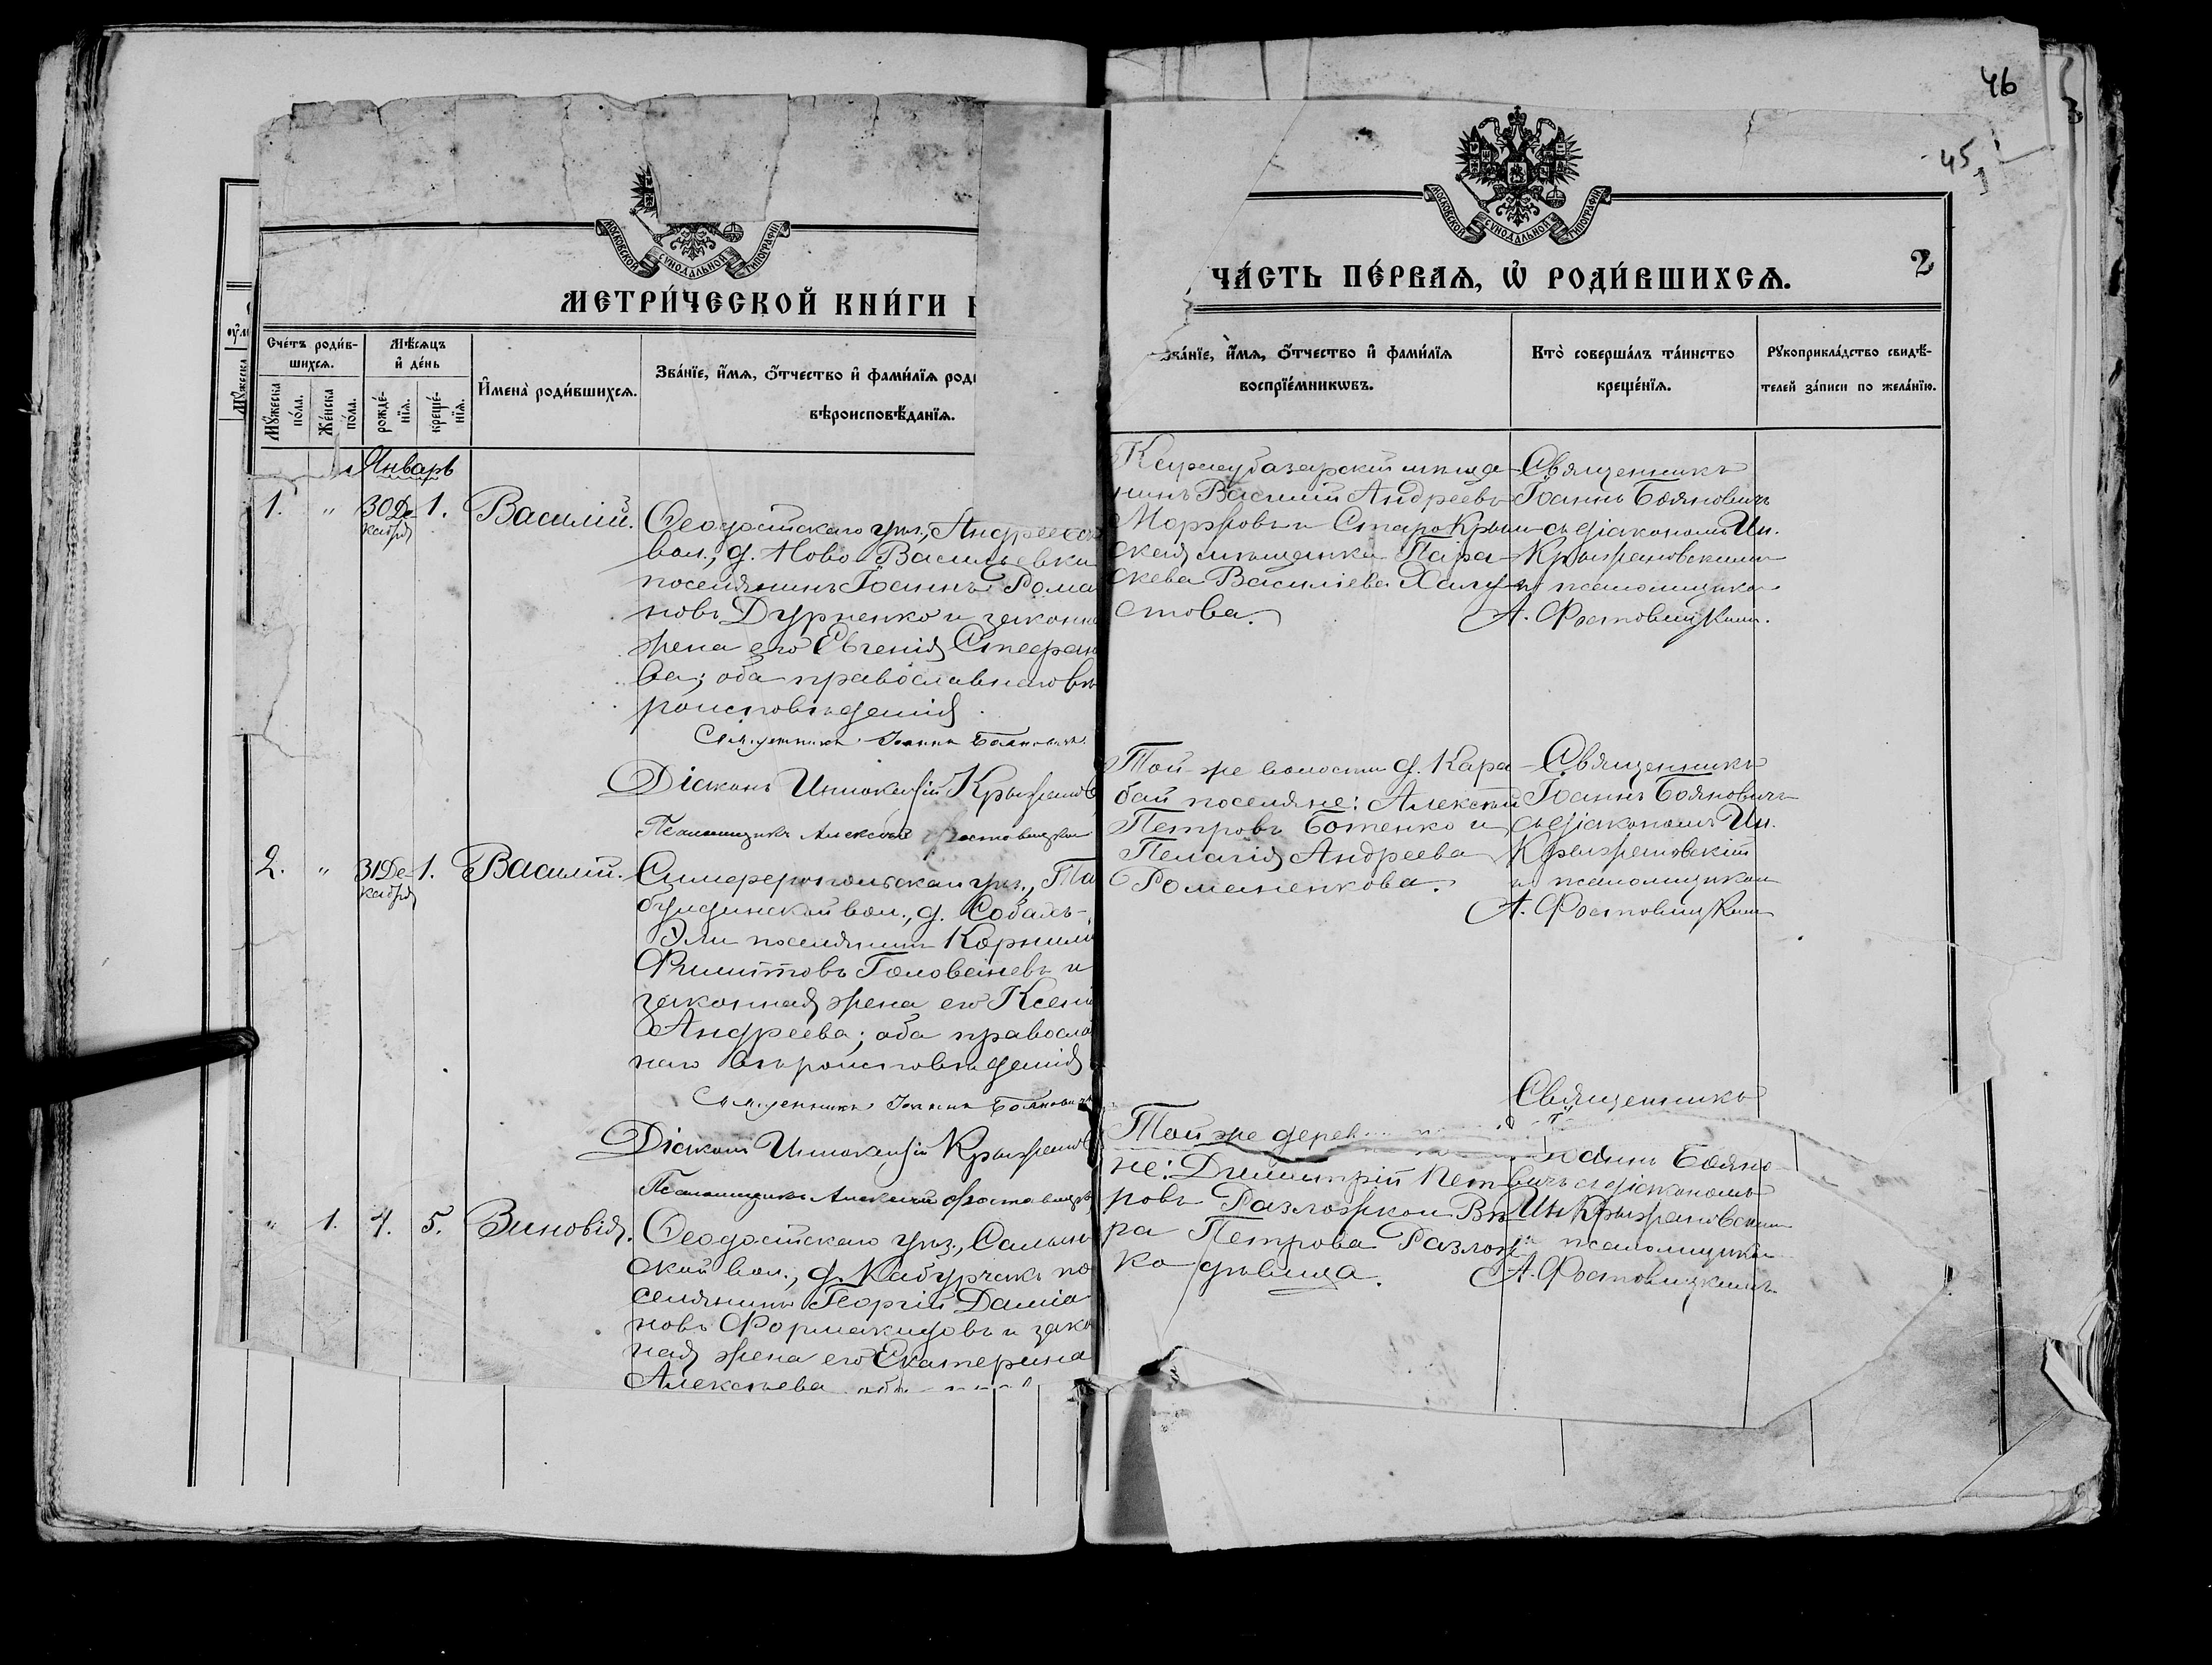 46
45
МОСКОВСКОЙ СУНОДАЛЬНОЙ ТИПОГРАФІИ
МОСКОВСКОЙ СУНОДАЛЬНОЙ ТИПОГРАФІИ
МЕТРИ́ЧЕСКОЙ КНИ́ГИ
ЧА́СТЬ ПЕ́РВАѦ, Ѡ҆ РОДИ́ВШИХСѦ.
2
Сче́тъ роди́в-
шихсѧ.
Мѹ́жеска
по́ла.
Же́нска
по́ла.
Мѣ́сѧцъ
и҆ де́нь
рожде́-
нїѧ.
креще́-
нїѧ.
И҆мена̀ роди́вшихсѧ.
Зва́нїе, и҆́мѧ, ѻ҆́тчество и҆ фами́лїѧ
вѣроисповѣ́данїѧ.
и҆́мѧ, ѻ҆́тчество и҆ фами́лїѧ
воспрїе́мникѡвъ.
Кто̀ соверша́лъ та́инство
креще́нїѧ.
Рѹкоприкла́дство свидѣ́-
телей за́писи по жела́нїю.
Январь
1. " 30 Де- 1. Василій.
кабря
Ѳеодосійскаго уѣз., Андреевск
вол., д. Ново Васильевки
поселянинъ Іоаннъ Рома
новъ Дурненко и законн
жена его Евгенія Стефан
ва; оба православнаго вѣ
роисповѣданія.
Священникъ Іоаннъ Бояновичъ
Діаконъ Иннокентій Крыжанов
Псаломщикъ Алексій Ростовицкій
Карасубазарскій мѣща
нинъ Василій Андреевъ
Морозовъ и СтароКрым
ская мѣщанка Пара-
скева Василіева Халу
стова.
Священникъ
Іоаннъ Бояновичъ
съ діакономъ Ин.
Крыжановскимъ
и псаломщиком
А. Ростовицким.
2. " 31 Де- 1. Василій.
кабря
Симферопольскаго уѣз., Та
булдинской вол., д. Собаль-
Эли поселянинъ Корнилій
Филиповъ Голованевъ и
законная жена его Ксенія
Андреева; оба православ
наго вѣроисповѣданія
Священникъ Іоаннъ Боянович
Діаконъ Иннокентій Крыжанов
Псаломщикъ Алексій Ростовицк
Той-же волости д. Кара-
бай поселяне: Алексѣй
Петровъ Ботенко и
Пелагія Андреева
Романенкова.
Священникъ
Іоаннъ Бояновичъ
съ діакономъ Ин.
Крыжановскій
и псаломщиком
А. Ростовицким
" 1. 4. 5. Зиновія.
Ѳеодосійскаго уѣз., Салын
ской вол., д. Кабурчакъ по
селянинъ Георгій Даміа
новъ Формакидовъ и зако
ная жена его Екатерина
Алексѣева оба
Той же дерев
не: Димитрій Пет
ровъ Разложкои Вѣ
ра Петрова Разлож
ко дѣвица.
Священникъ
Іоаннъ Бояно-
вичъ съ діакономъ
Ин. Крыжановским
и псаломщиком
А. Ростовицкимъ